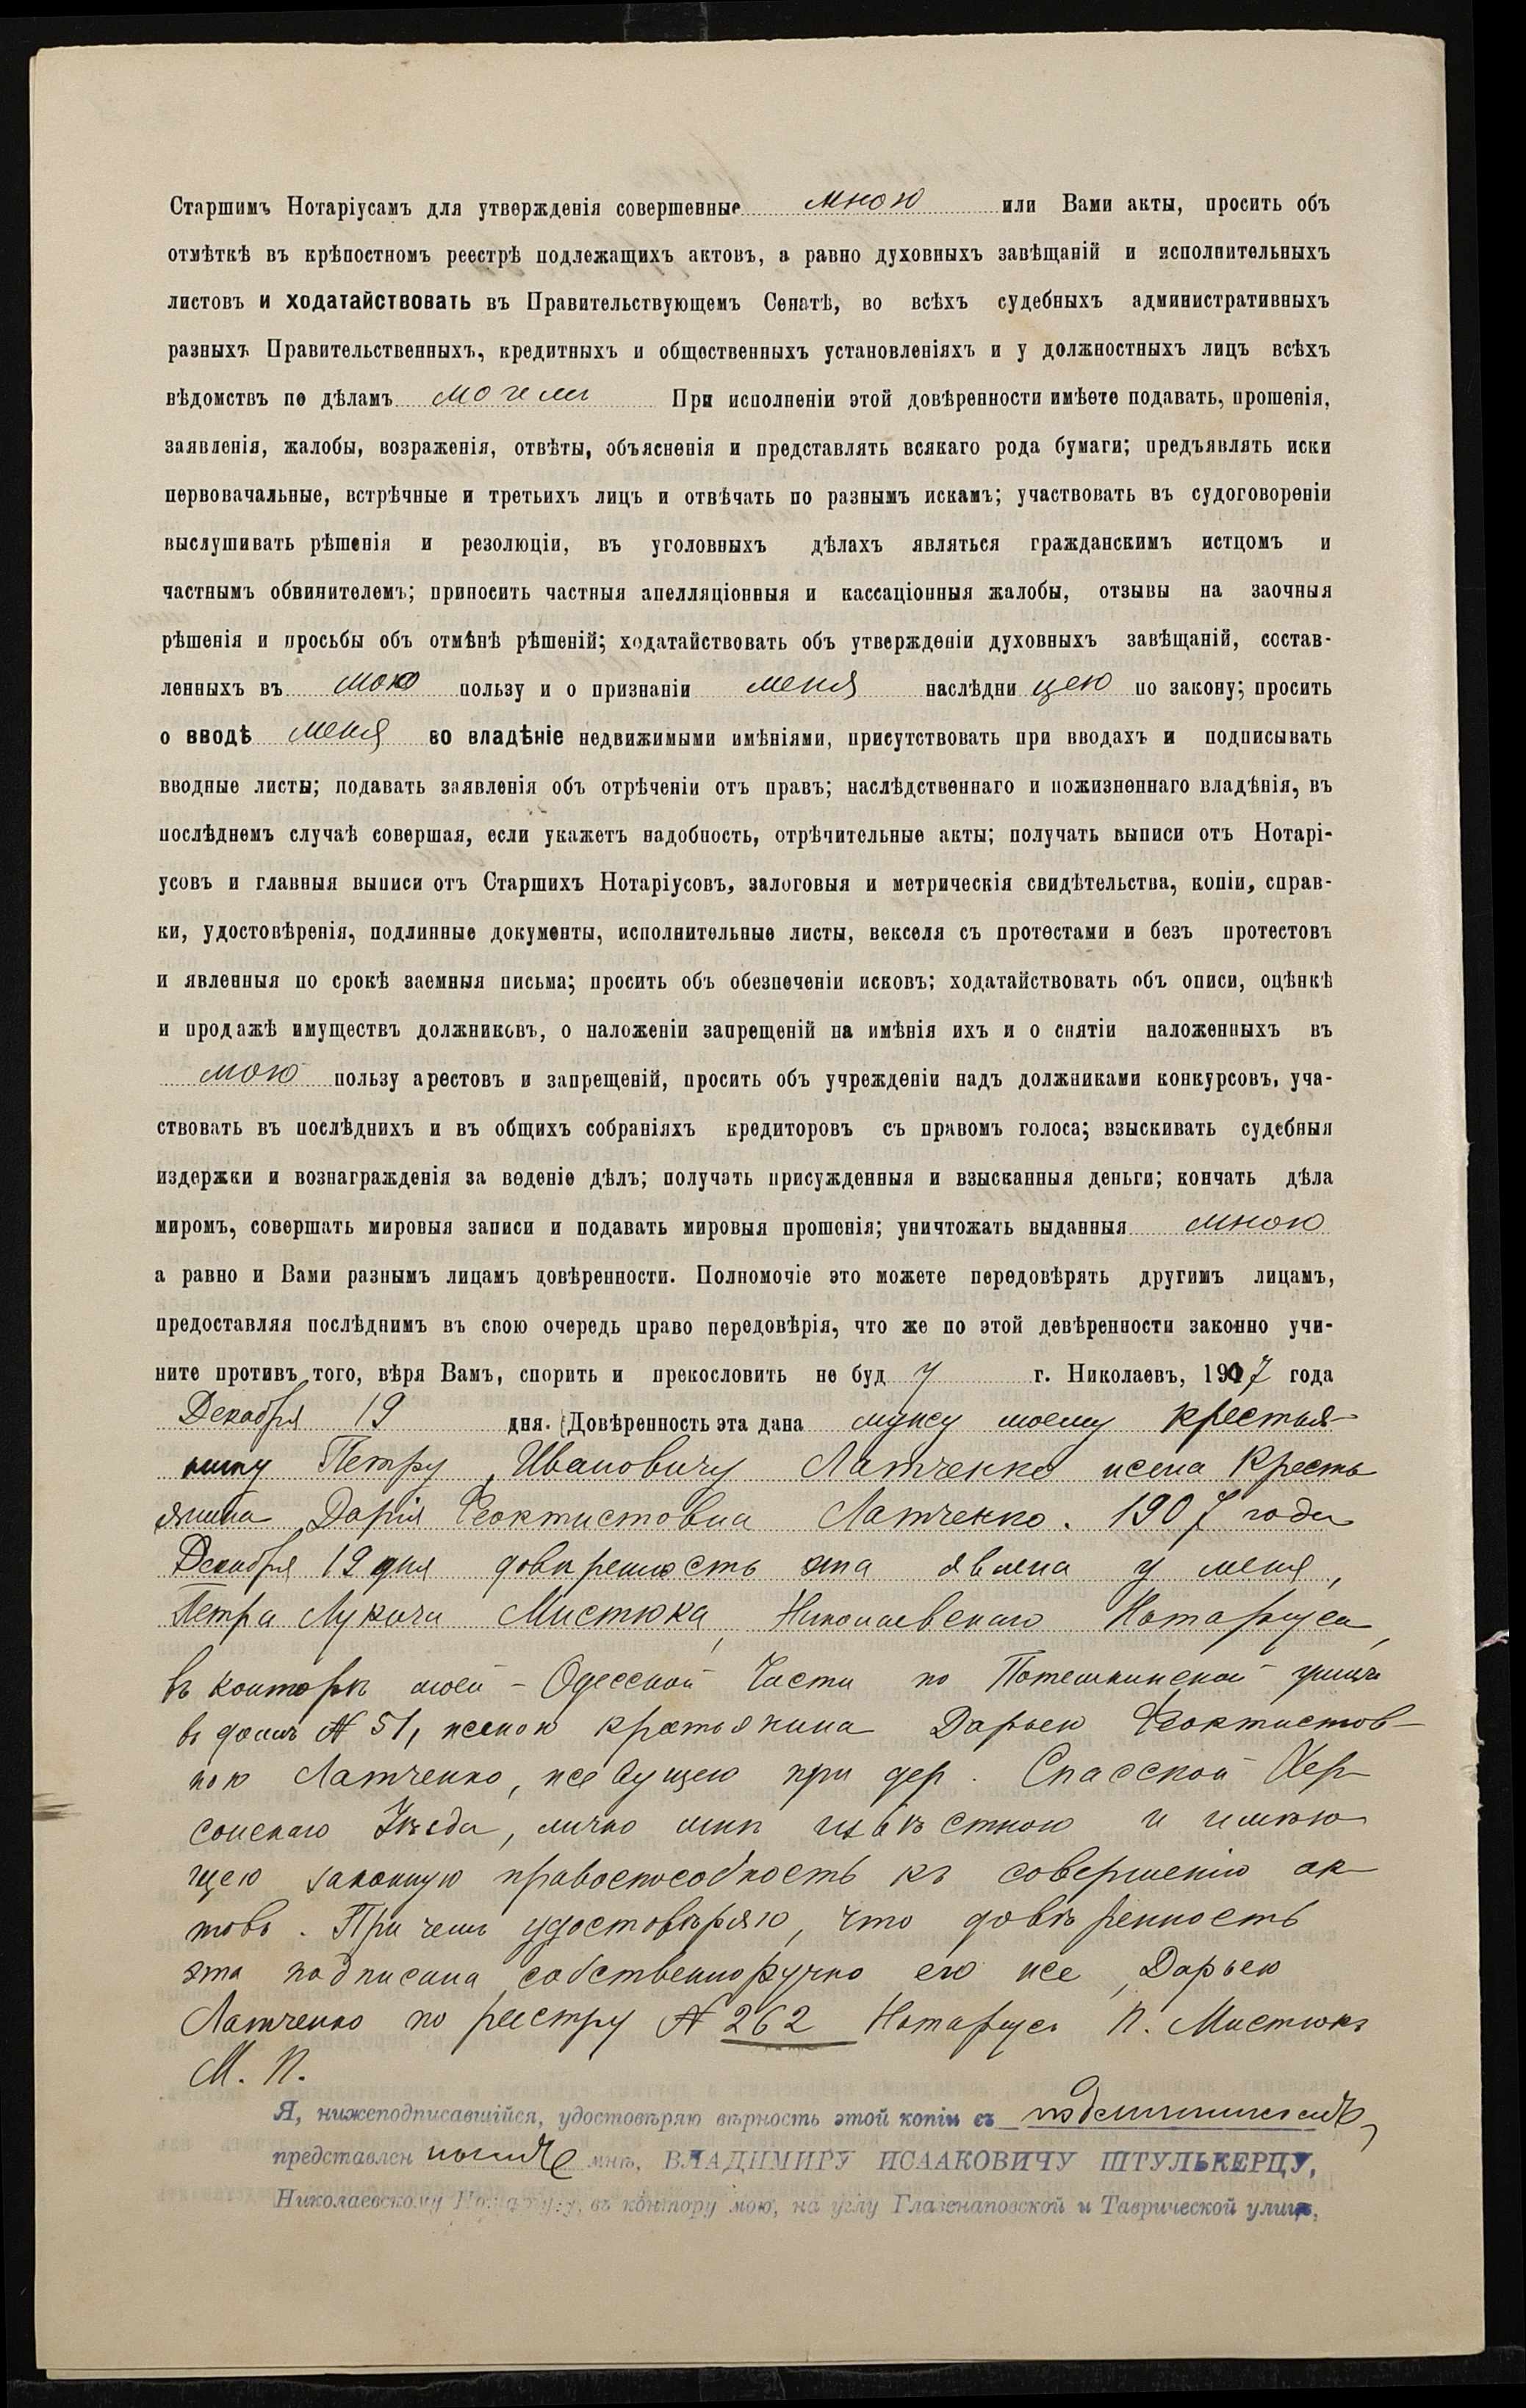 Старшимъ Нотаріусамъ для утвержденія совершенные мною или Вами акты, просить объ
отмѣткѣ въ крѣпостномъ реестрѣ подлежащихъ актовъ, а равно духовныхъ завѣщаній и исполнительныхъ
листовъ и ходатайствовать въ Правительствующемъ Сенатѣ, во всѣхъ судебныхъ административныхъ
разныхъ Правительственныхъ, кредитныхъ и общественныхъ установленіяхъ и у должностныхъ лицъ всѣхъ
вѣдомствъ по дѣламъ моимъ При исполненіи этой довѣренности имѣете подавать, прошенія,
заявленія, жалобы, возраженія, отвѣты, объясненія и представлять всякаго рода бумаги; предъявлять иски
первоначальные, встрѣчные и третьихъ лицъ и отвѣчать по разнымъ искамъ; участвовать въ судоговореніи
выслушивать рѣшенія и резолюціи, въ уголовныхъ дѣлахъ являться гражданскимъ истцомъ и
частнымъ обвинителемъ; приносить частныя апелляціонныя и кассаціонныя жалобы, отзывы на заочныя
рѣшенія и просьбы объ отмѣнѣ рѣшеній; ходатайствовать объ утвержденіи духовныхъ завѣщаній, состав-
ленныхъ въ мою пользу и о признаніи меня наслѣдни цею по закону; просить
о вводѣ меня во владѣніе недвижимыми имѣніями, присутствовать при вводахъ и подписывать
вводные листы; подавать заявленія объ отрѣченіи отъ правъ; наслѣдственнаго и пожизненнаго владѣнія, въ
послѣднемъ случаѣ совершая, если укажетъ надобность, отрѣчительные акты; получать выписи отъ Нотарі-
усовъ и главныя выписи отъ Старшихъ Нотаріусовъ, залоговыя и метрическія свидѣтельства, копіи, справ-
ки, удостовѣренія, подлинные документы, исполнительные листы, векселя съ протестами и безъ протестовъ
и явленныя по срокѣ заемныя письма; просить объ обезпеченіи исковъ; ходатайствовать объ описи, оцѣнкѣ
и продажѣ имуществъ должниковъ, о наложеніи запрещеній на имѣнія ихъ и о снятіи наложенныхъ въ
мою пользу арестовъ и запрещеній, просить объ учрежденіи надъ должниками конкурсовъ, уча-
ствовать въ послѣднихъ и въ общихъ собраніяхъ кредиторовъ съ правомъ голоса; взыскивать судебныя
издержки и вознагражденія за веденіе дѣлъ; получать присужденныя и взысканныя деньги; кончать дѣла
миромъ, совершать мировыя записи и подавать мировыя прошенія; уничтожать выданныя мною
а равно и Вами разнымъ лицамъ довѣренности. Полномочіе это можете передовѣрять другимъ лицамъ,
предоставляя послѣднимъ въ свою очередь право передовѣрія, что же по этой девѣренности законно учи-
ните противъ того, вѣря Вамъ, спорить и прекословить не буд у г. Николаевъ, 1907 года
Декабря 19 дня. Довѣренность эта дана мужу моему крестья-
нину Петру Ивановичу Латченко жена Кресть
янина Дарія Феоктистовна Латченко. 1907 года
Декабря 19 дня довѣренность эта явлена у меня,
Петра Лукича Мистюка, Николаевскаго Нотаріуса,
въ конторѣ моей - Одесской Части по Потемкинской улицѣ
въ домѣ № 51, женою крестьянина Дарьею Феоктистов-
ною Латченко, живущею при дер. Спасской Хер-
сонскаго Уѣзда, лично мнѣ извѣстною и имѣю-
щею законную правоспособность къ совершенію ак-
товъ. При чемъ удостовѣряю, что довѣренность
эта подписана собственноручно ею же, Дарьею
Латченко по реестру № 262 Нотаріусъ П. Мистюкъ
М. П.
Я, нижеподписавшійся, удостовѣряю вѣрность этой копіи съ подлинникомъ,
представлен нымъ мнѣ, ВЛАДИМИРУ ИСААКОВИЧУ ШТУЛЬКЕРЦУ,
Николаевскому Нотаріусу, въ контору мою, на углу Глазенаповской и Таврической улицъ,